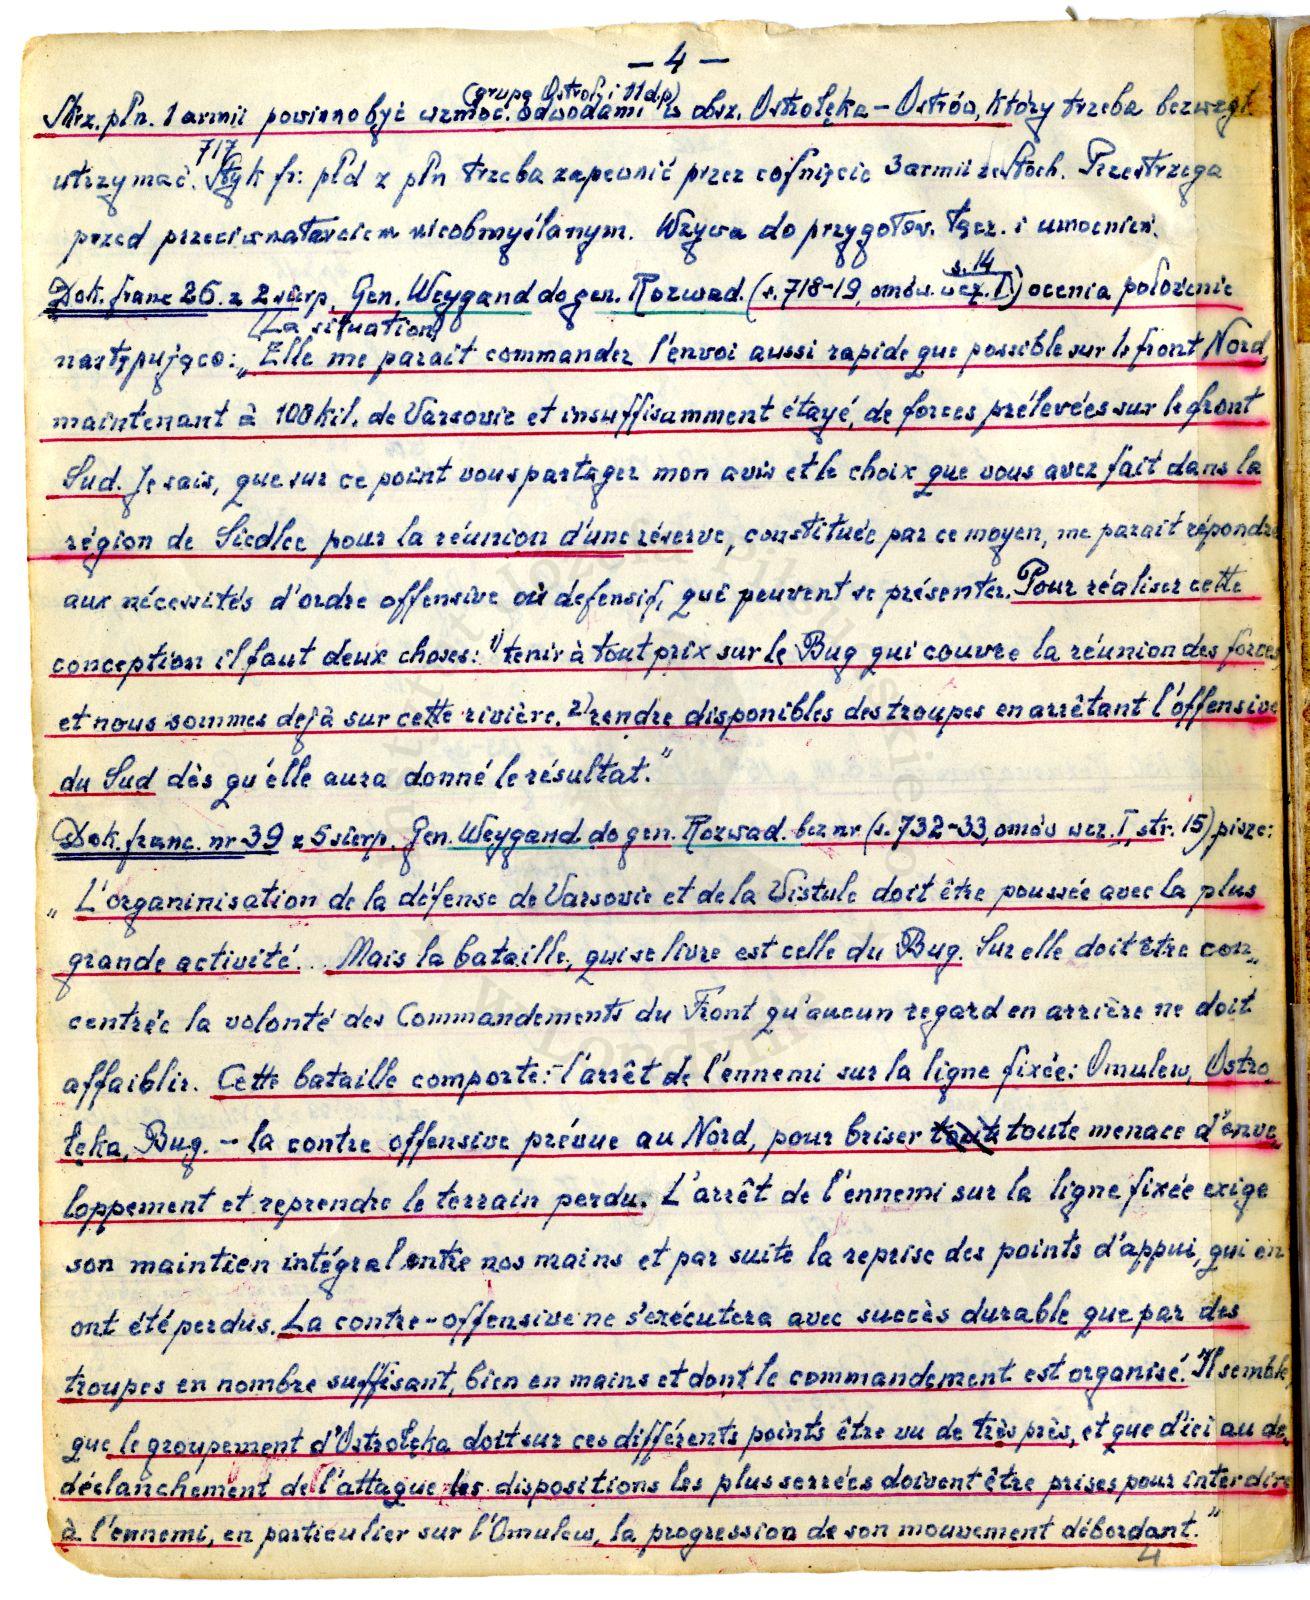 — 4 —
(grupę Ostroł. i 11 d.p)
Skrz. płn. 1 armii powinno być wzmoc. odwodami w obsz. Ostrołęka – Ostrów, który trzeba bezwzgl.
717
utrzymać. Styk fr: płd z płn trzeba zapewnić przez cofnięcie 3 armii ze Stoch. Przestrzega
przed przeciwnatarciem nieobmyślanym. Wzywa do przygotow. łącz. i umocnień.
s. 14
Dok. franc 26. z 2 sierp. Gen. Weygand do gen. Rozwad. (s. 718–19, omów. wcz. I) ocenia położenie
(La situation)
następująco: „Elle me parait commander l'envoi aussi rapide que possible sur le front Nord,
maintenant à 100 kil. de Varsovie et insuffisamment étayé, de forces prélevées sur le front
Sud. Je sais, que sur ce point vous partager mon avis et le choix que vous avez fait dans la
région de Siedlce pour la réunion d'une réserve, constituée par ce moyen, me parait répondre
aux nécessités d'ordre offensive où defensif, qui peuvent se présenter. Pour réaliser cette
conception il faut deux choses: 1) tenir à tout prix sur le Bug qui couvre la réunion des forces
et nous sommes dejà sur cette rivière. 2) rendre disponibles des troupes en arrêtant l'offensive
du Sud dès qu'elle aura donné le résultat."
Dok. franc. nr 39 z 5 sierp. Gen. Weygand do gen. Rozwad. bez nr (s. 732–33, omów wcz. I, str. 15) pisze:
„L'organinisation de la défense de Varsovie et de la Vistule doit être poussée avec la plus
grande activité... Mais la bataille, qui se livre est celle du Bug. Sur elle doit être con„
centrée la volonté des Commandements du Front qu'aucun regard en arrière ne doit
affaiblir. Cette bataille comporte: – l'arrêt de l'ennemi sur la ligne fixée: Omulew, Ostro„
łęka, Bug. – la contre offensive prévue au Nord, pour briser toute menace d'enve„
loppement et reprendre le terrain perdu. L'arrêt de l'ennemi sur la ligne fixée exige
son maintien intégral entre nos mains et par suite la reprise des points d'appui, qui en
ont été perdus. La contre-offensive ne s'exécutera avec succès durable que par des
troupes en nombre suffisant, bien en mains et dont le commandement est organisé. Il semble,
que le groupement d'Ostrołęka doit sur ces différents points être vu de très près, et que d'ici au de„
déclanchement de l'attaque les dispositions les plus serrées doivent être prises pour interdire
à l'ennemi, en particulier sur l'Omulew, la progression de son mouvement débordant."
4